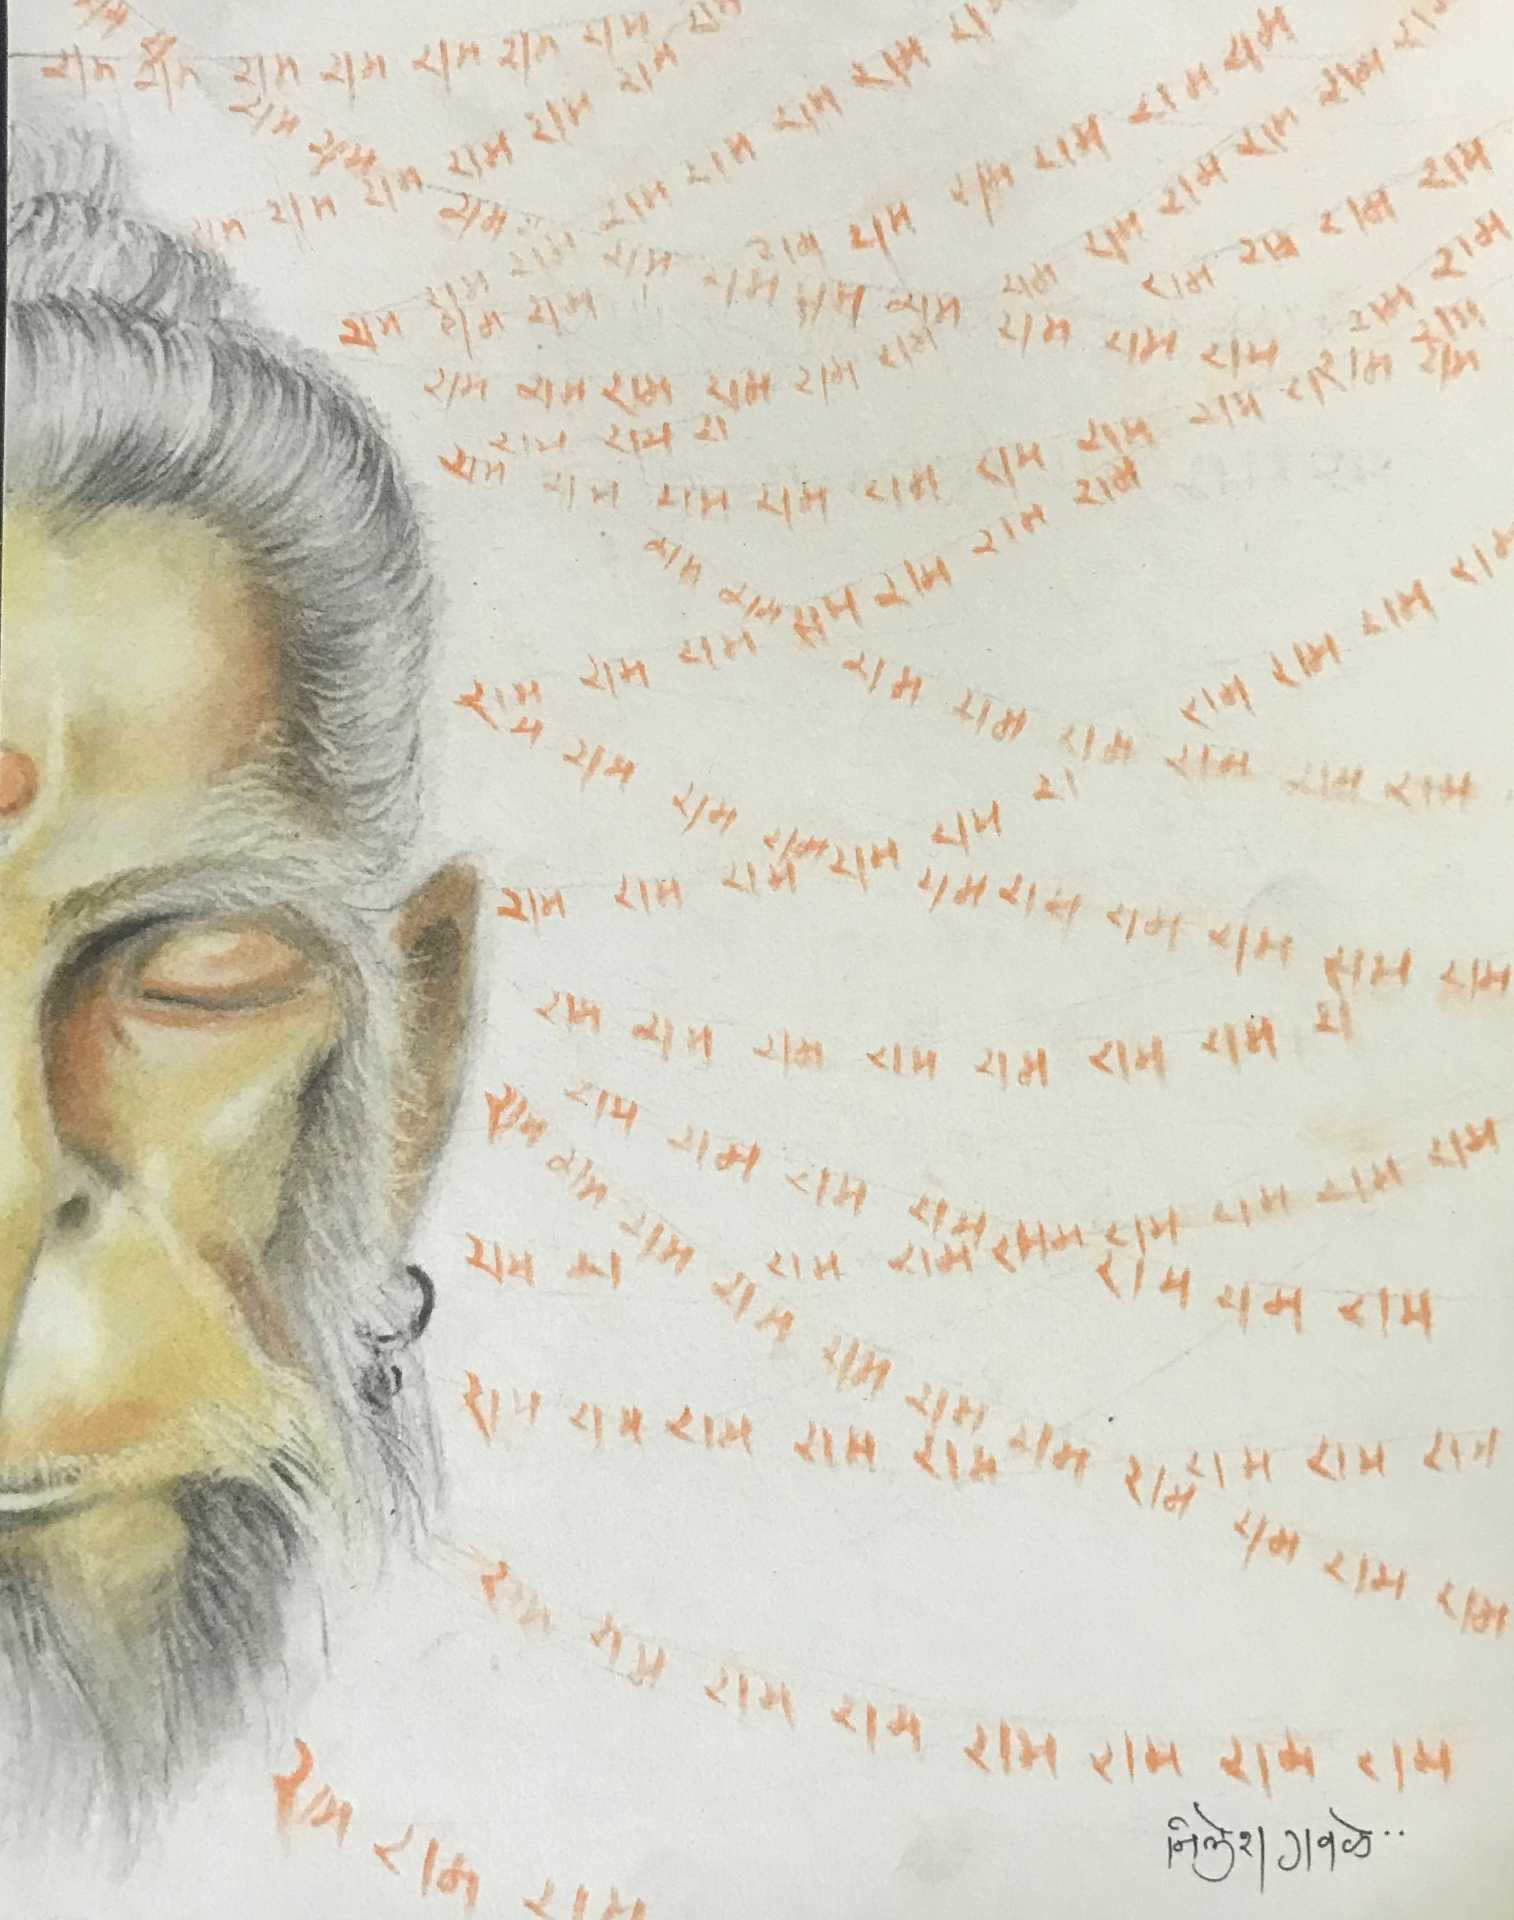 राम राम राम राम राम राम राम राम
राम राम राम राम राम राम राम
राम राम राम राम राम राम राम
राम राम राम राम राम राम राम
राम राम राम राम राम राम राम
राम राम राम राम राम राम राम राम
राम राम राम राम राम राम राम राम राम
राम राम रा
राम राम राम राम राम राम राम राम
राम राम राम राम राम राम राम
राम राम राम राम राम राम राम राम
राम राम राम राम
राम राम राम राम राम राम रा
राम राम राम राम राम राम राम राम राम राम
राम राम राम राम राम राम राम रा
राम राम राम राम राम राम राम राम राम
राम राम राम राम राम राम राम राम
राम राम राम राम राम राम राम राम
राम राम राम राम राम राम राम राम
राम राम राम राम राम राम राम राम
राम राम राम
निलेश गवळे..